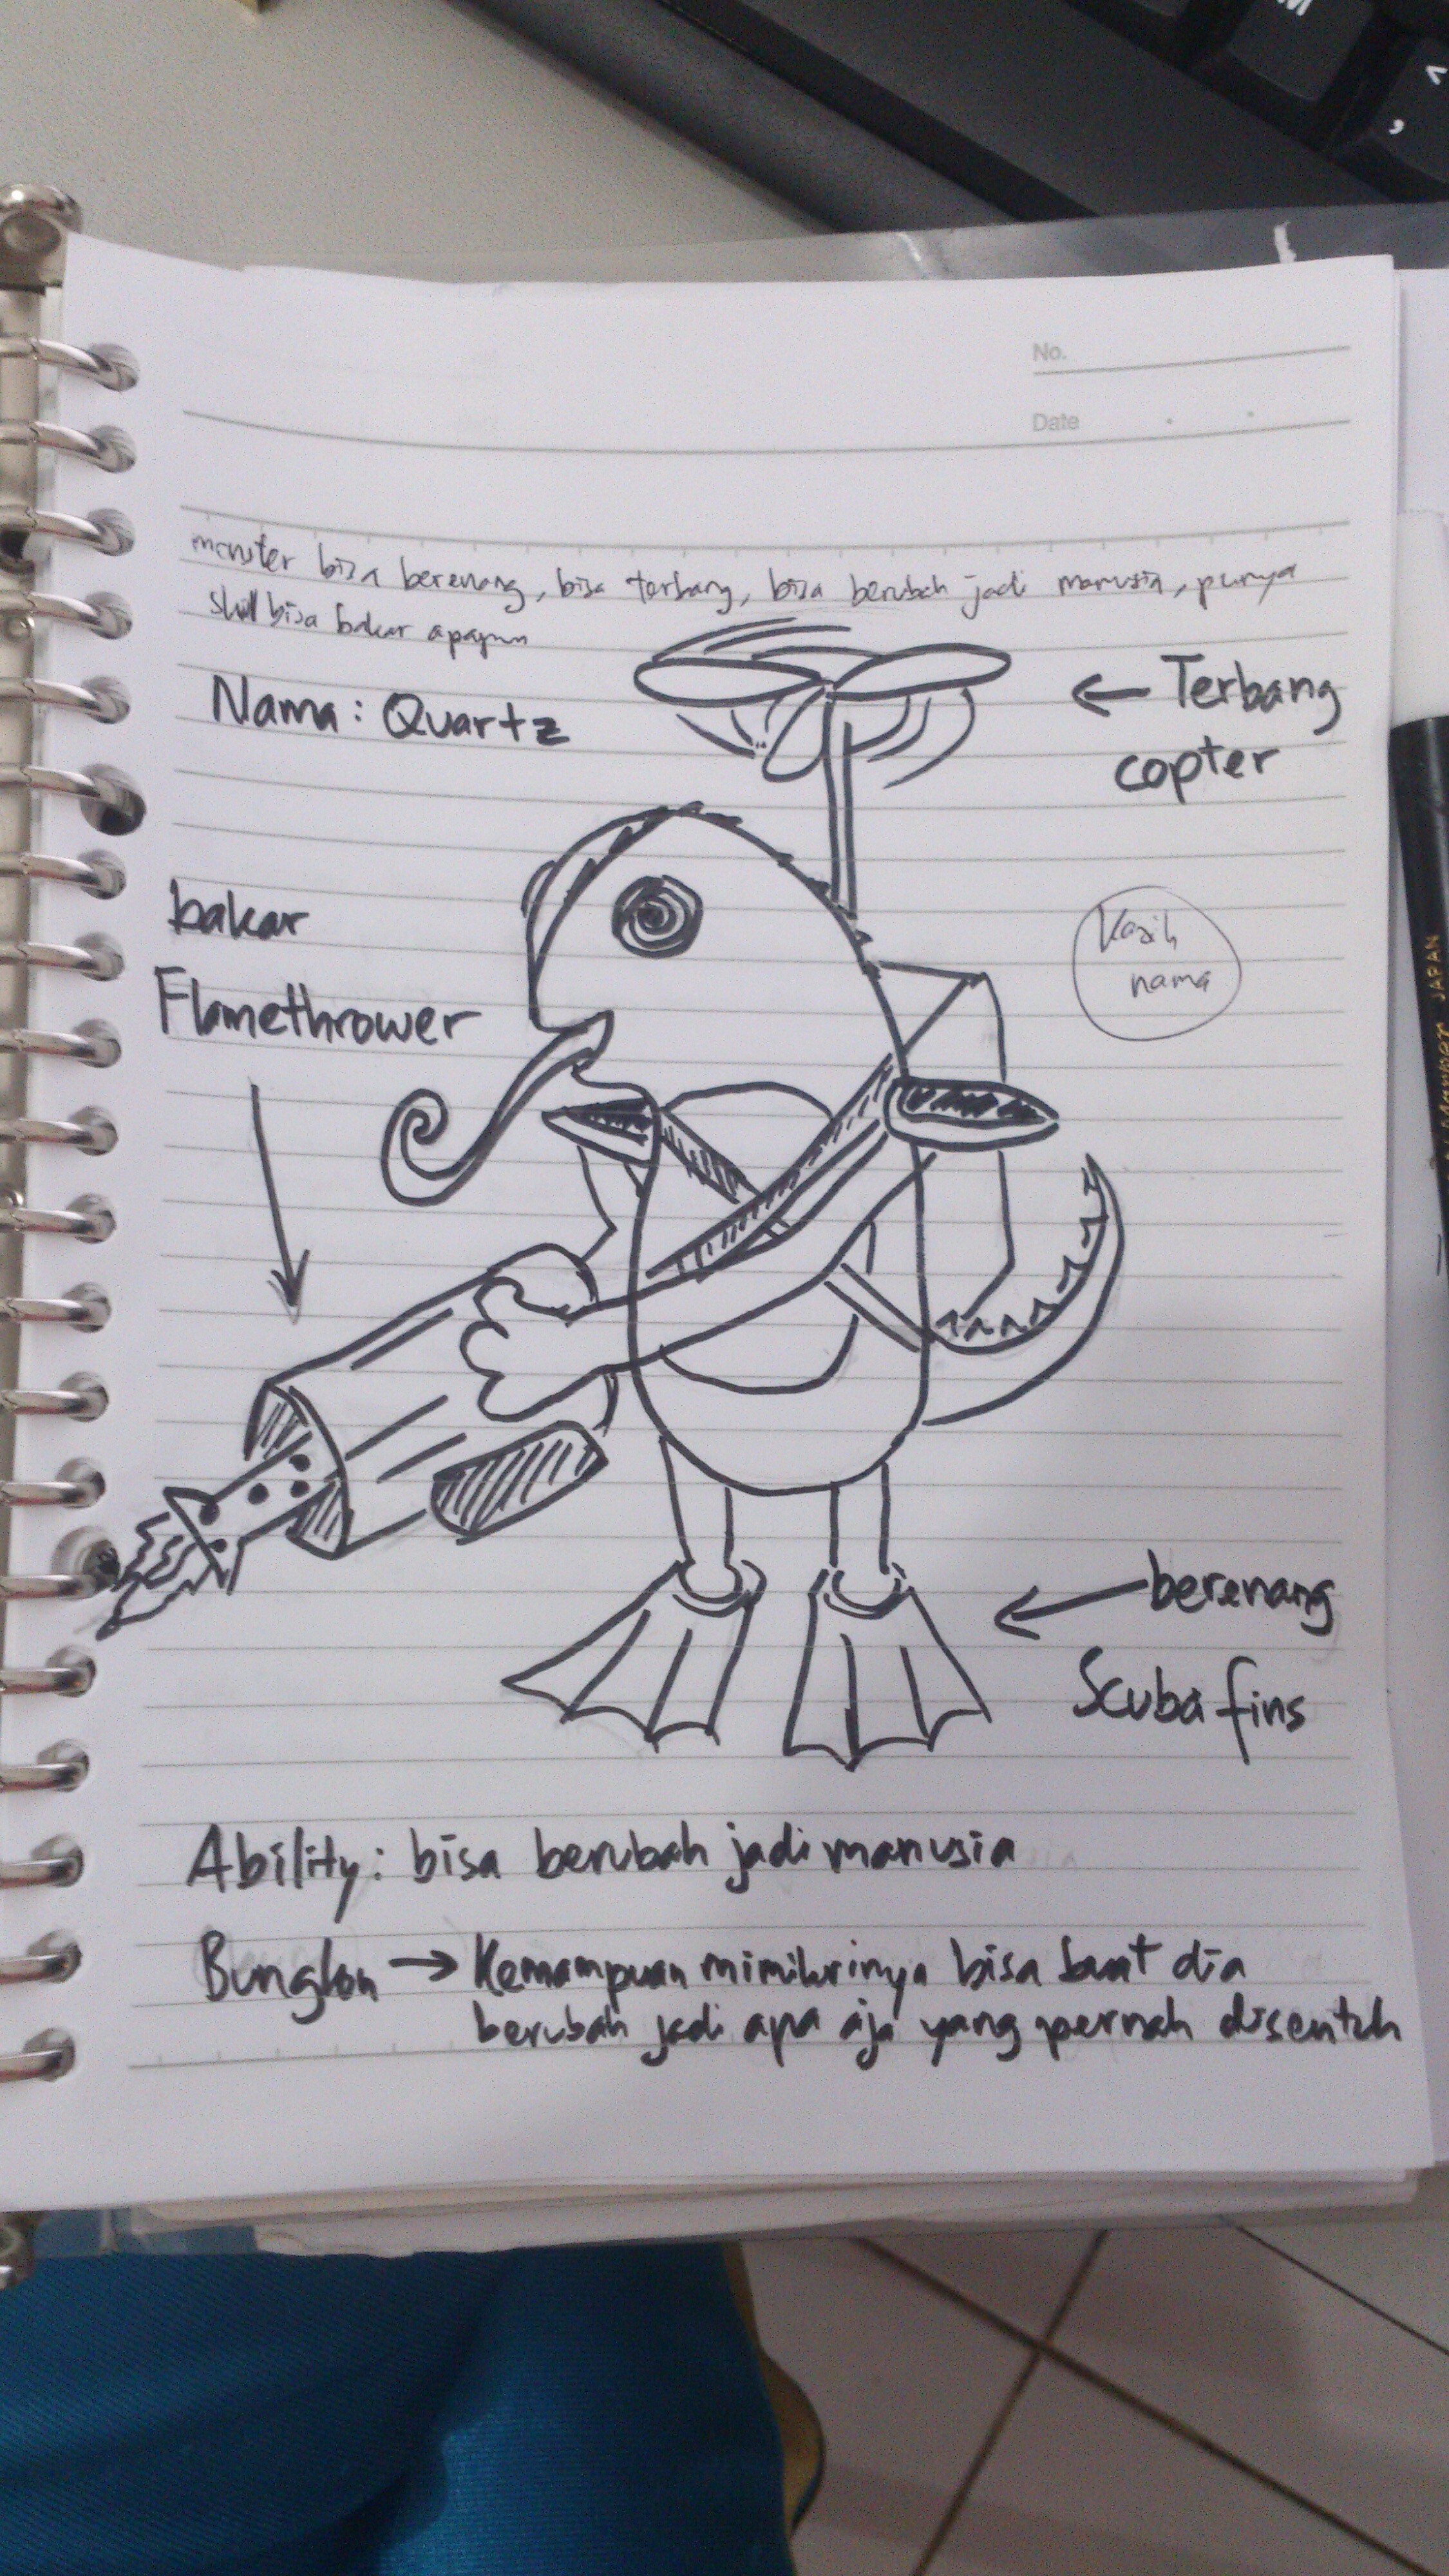 No.
Date
monster bisa berenang, bisa terbang, bisa berubah jadi manusia, punya
skill bisa bakar apapun
Nama: Quartz
← Terbang
copter
bakar
Flamethrower
Kasih
nama
JAPAN
berenang
Scuba fins
Ability: bisa berubah jadi manusia
Bunglon → Kemampuan mimikrinya bisa buat dia
berubah jadi apa aja yang pernah disentuh